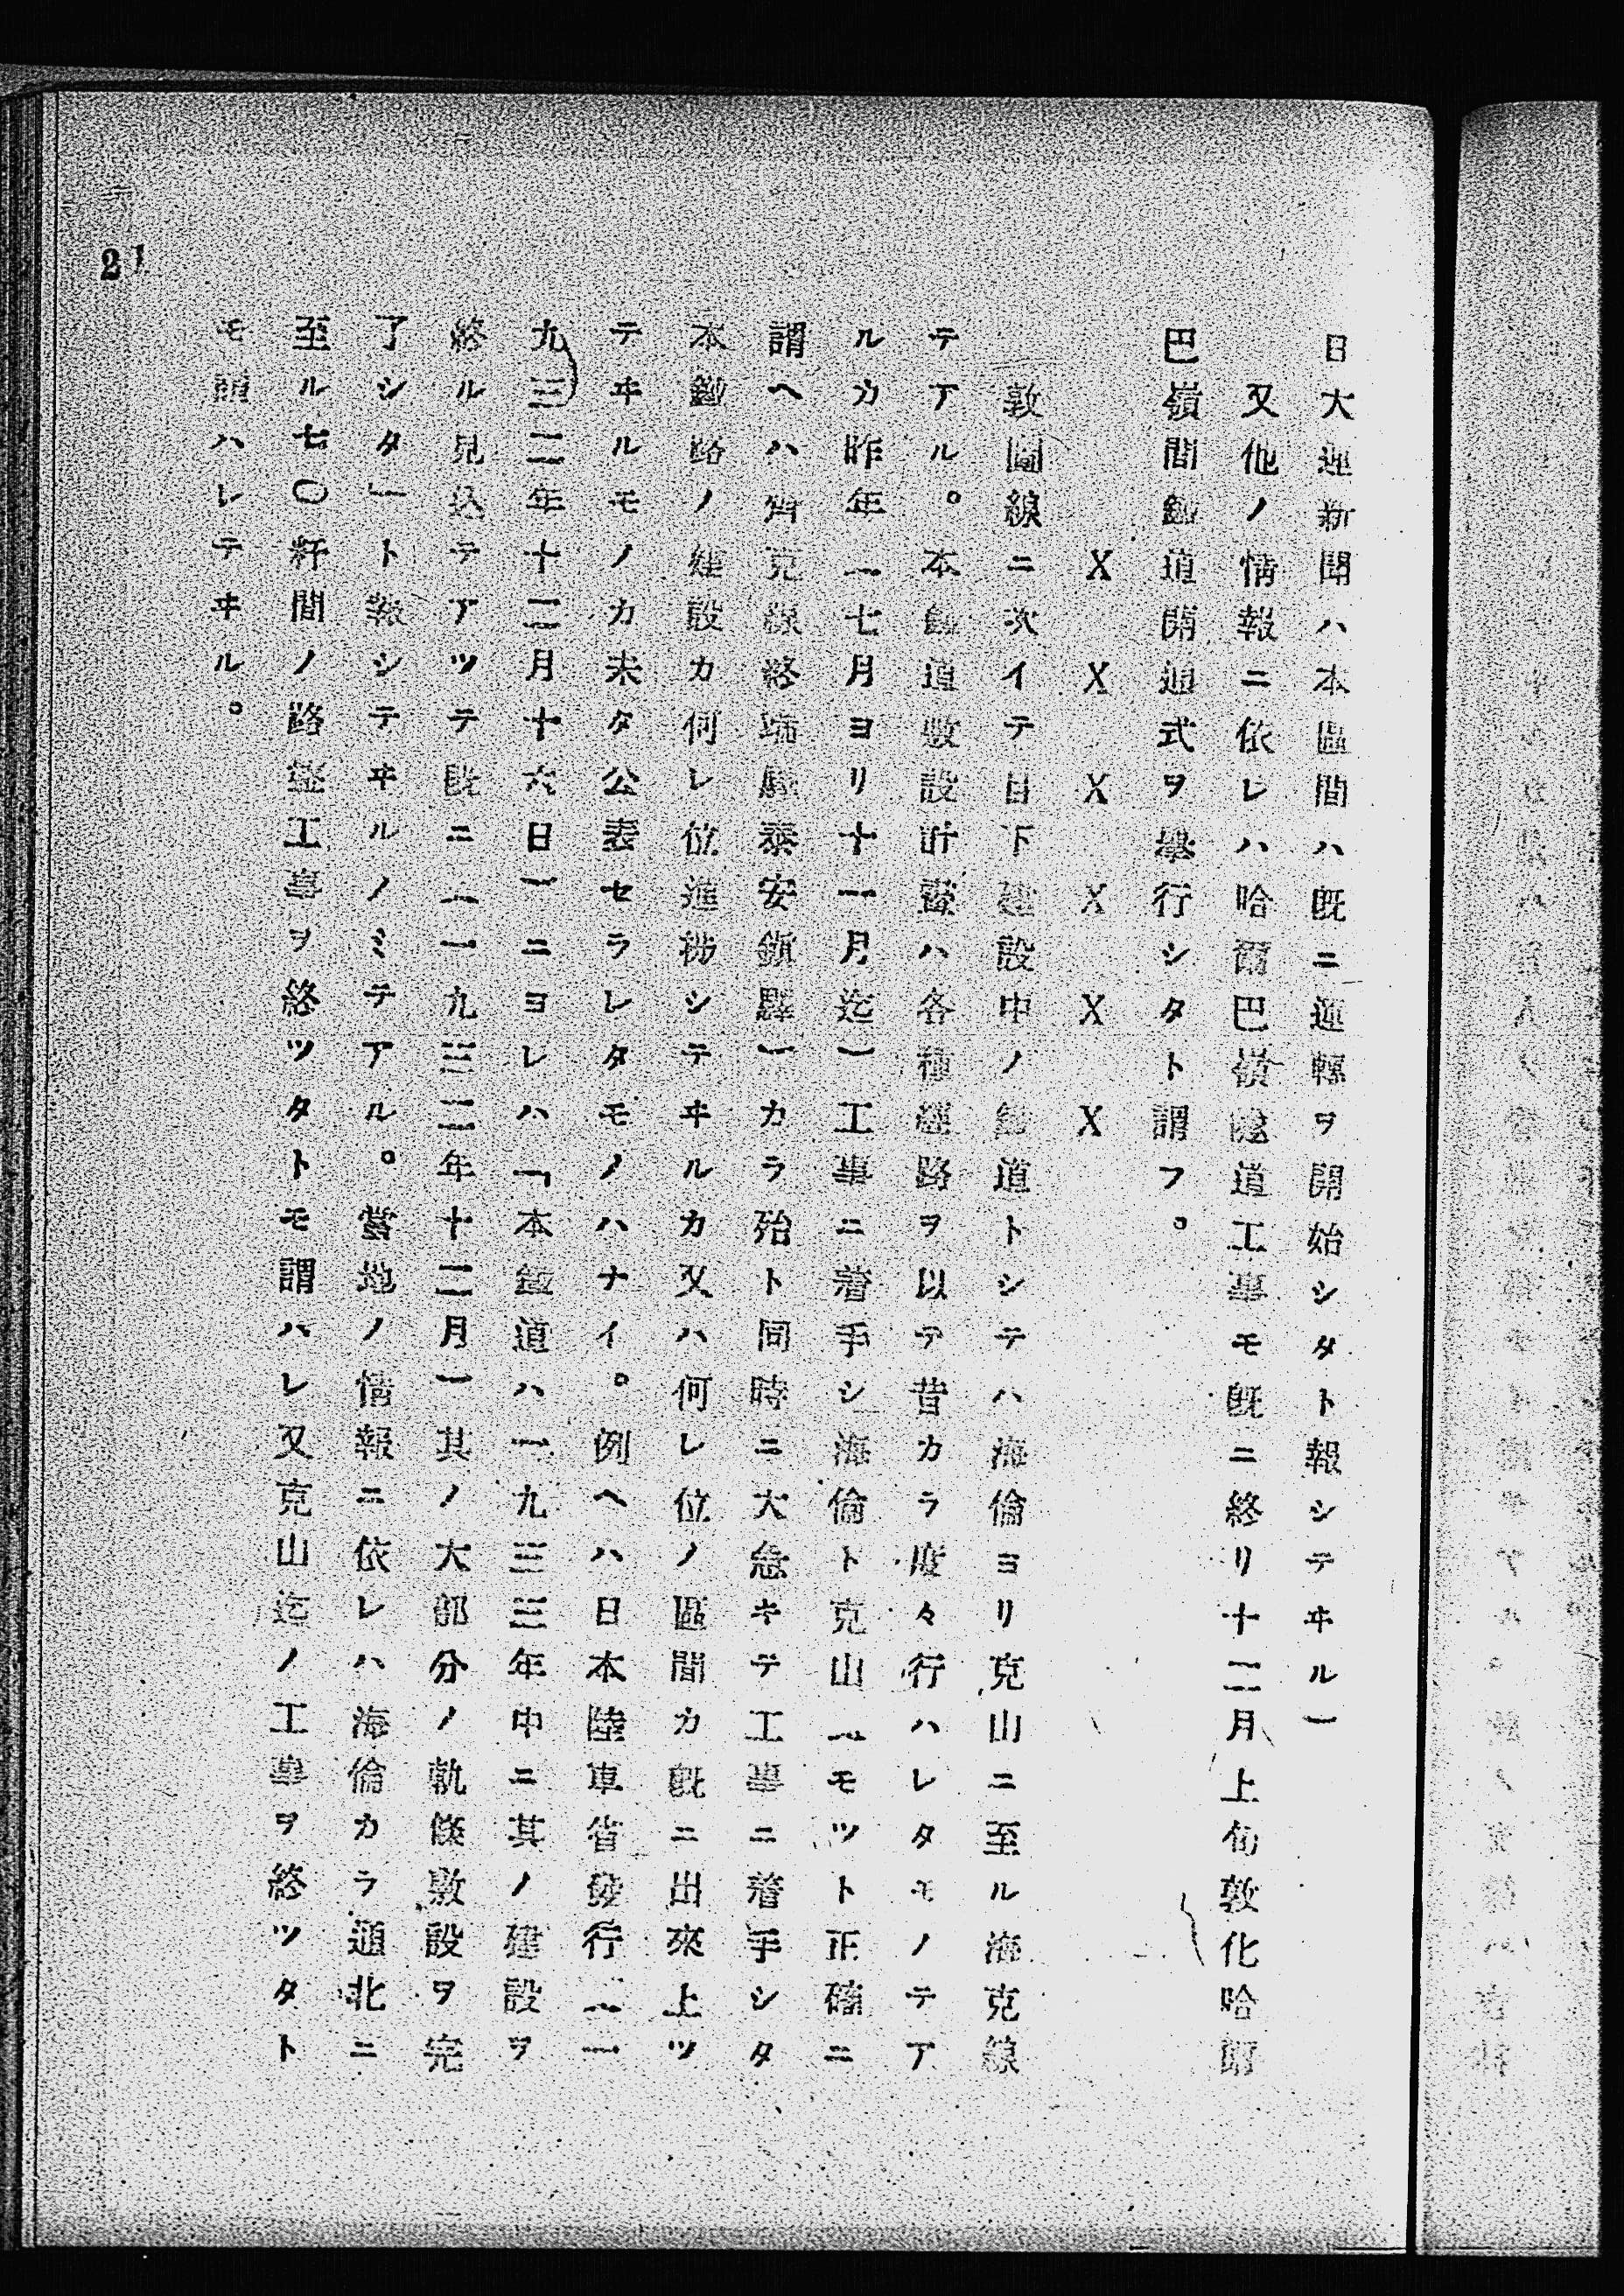 日大連新聞ハ本區間ハ既ニ運轉ヲ開始シタト報シテヰル)
又他ノ情報ニ依レハ哈爾巴嶺隧道工事モ既ニ終リ十二月上旬敦化哈爾
巴嶺間鐵道開通式ヲ擧行シタト謂フ。
X X X X X X
敦圖線ニ次イテ目下建設中ノ鐵道トシテハ海倫ヨリ克山ニ至ル海克線
テアル。本鐵道敷設計畫ハ各種經路ヲ以テ昔カラ度々行ハレタモノテア
ルカ昨年(七月ヨリ十一月迄)工事ニ着手シ海倫ト克山(モツト正確ニ
謂ヘハ齊克線終端驛泰安鎭驛)カラ殆ト同時ニ大急キテ工事ニ着手シタ
本鐵路ノ建設カ何レ位進捗シテヰルカ又ハ何レ位ノ區間カ既ニ出來上ツ
テヰルモノカ未タ公表セラレタモノハナイ。例ヘハ日本陸軍省發行(一
九三二年十二月十六日)ニヨレハ「本鐵道ハ一九三三年中ニ其ノ建設ヲ
終ル見込テアツテ既ニ(一九三二年十二月)其ノ大部分ノ軌條敷設ヲ完
了シタ」ト報シテヰルノミテアル。當地ノ情報ニ依レハ海倫カラ通北ニ
至ル七〇粁間ノ路盤工事ヲ終ツタトモ謂ハレ又克山迄ノ工事ヲ終ツタト
モ謂ハレテヰル。
21